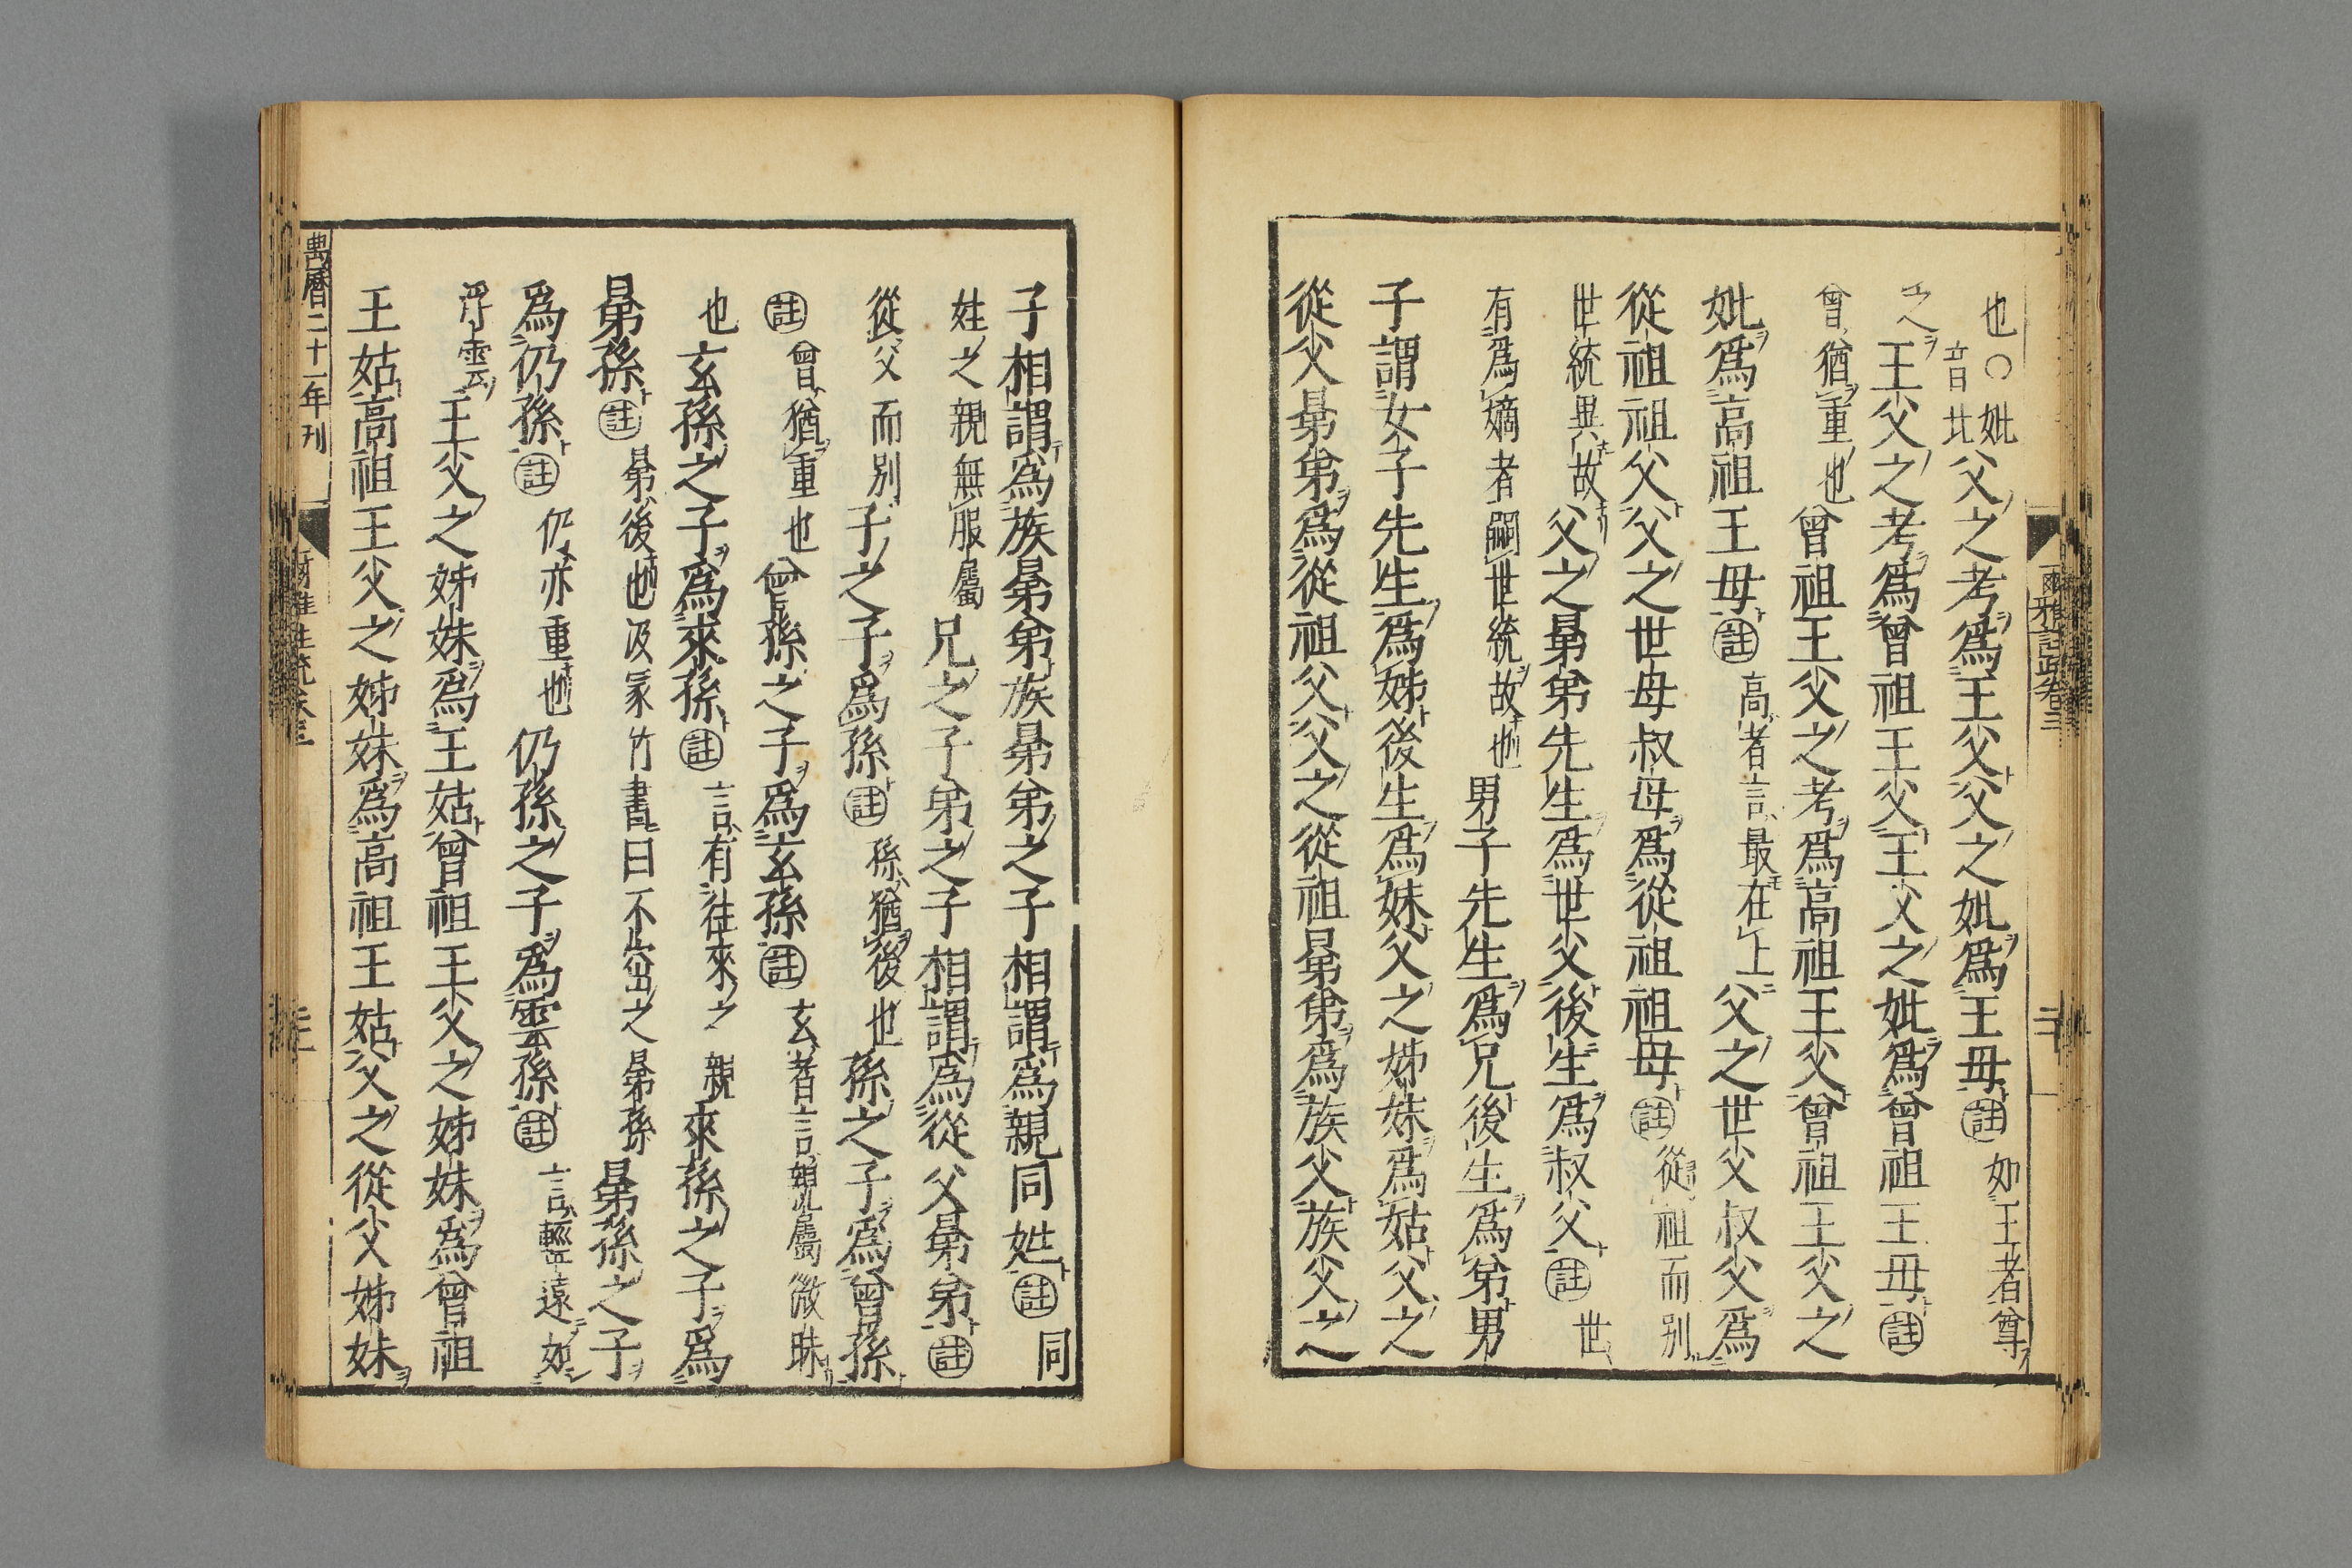 也○妣音比父之考爲王父父之妣爲王母註如王者尊
之王父之考爲曾祖王父王父之妣爲曾祖王母註
曾猶重也曾祖王父之考爲高祖王父曾祖王父之
妣爲高祖王母註高者言最在上父之世父叔父爲
從祖祖父父之世母叔母爲從祖祖母註從祖而別
世統異故父之晜弟先生爲世父後生爲叔父註世
有爲嫡者嗣世統故也男子先生爲兄後生爲弟男
子謂女子先生爲姊後生爲妹父之姊妹爲姑父之
從父晜弟爲從祖父父之從祖晜弟爲族父族父之
子相謂爲族晜弟族晜弟之子相謂爲親同姓註同
姓之親無服屬兄之子弟之子相謂爲從父晜弟註
從父而別子之子爲孫註孫猶後也孫之子爲曾孫
註曾猶重也曾孫之子爲玄孫註玄者言親屬微昧
也玄孫之子爲來孫註言有往來之親來孫之子爲
晜孫註晜後也汲冢竹書曰不窋之晜孫晜孫之子
爲仍孫註仍亦重也仍孫之子爲雲孫註言輕遠如
浮雲王父之姊妹爲王姑曾祖王父之姊妹爲曾祖
王姑高祖王父之姊妹爲高祖王姑父之從父姊妹
萬曆二十一年刊